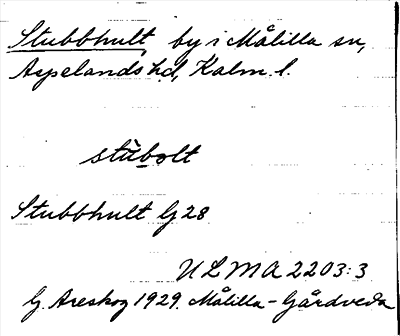 Stubbhult, by i Målilla sn,
Aspelands hd, Kalm. l.
stùbolt
Stubbhult Gj 28
ULMA 2203:3
Gj. Areskog 1929. Målilla-Gårdveda